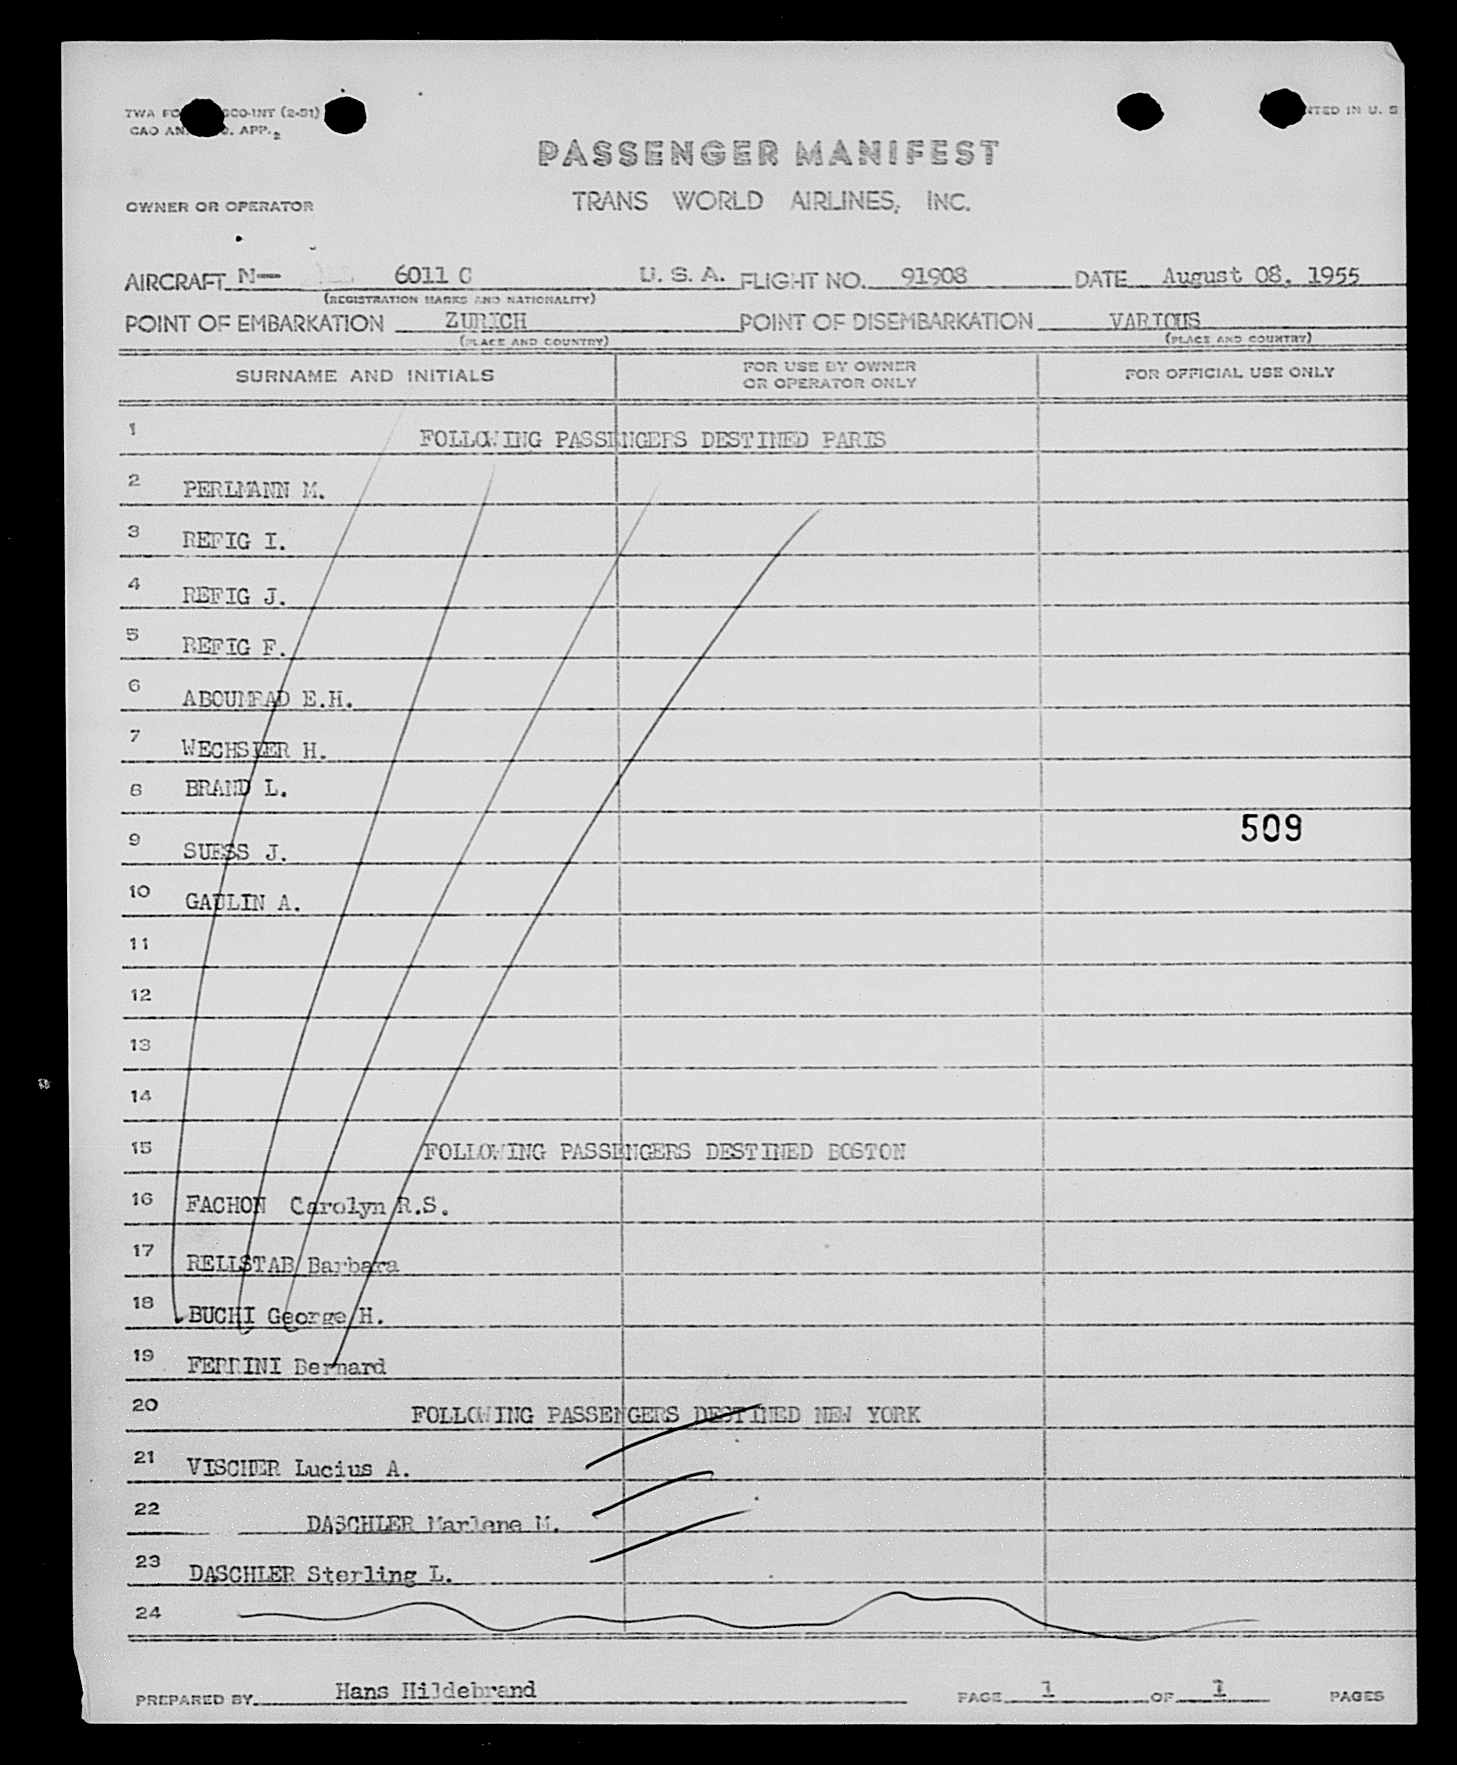 TWA FO
CO-INT (2-51)
NTED IN U. S
CAO AN
. APP.2
PASSENGER MANIFEST
OWNER OR OPERATOR
TRANS WORLD AIRLINES, INC.
AIRCRAFT N— 6011 C U. S. A. FLIGHT NO. 91908 DATE August 08, 1955
(REGISTRATION MARKS AND NATIONALITY)
POINT OF EMBARKATION ZURICH POINT OF DISEMBARKATION VARIOUS
(PLACE AND COUNTRY) (PLACE AND COUNTRY)
SURNAME AND INITIALS
FOR USE BY OWNER
OR OPERATOR ONLY
FOR OFFICIAL USE ONLY
1 FOLLOWING PASSENGERS DESTINED PARIS
2 PERLMANN M.
3 REFIG I.
4 REFIG J.
5 REFIG F.
6 ABOUMRAD E.H.
7 WECHSLER H.
8 BRAND L.
509
9 SUESS J.
10 GAULIN A.
11
12
13
14
15 FOLLOWING PASSENGERS DESTINED BOSTON
16 FACHON Carolyn R.S.
17 RELLSTAB Barbara
18 BUCHI George H.
19 FERRINI Bernard
20 FOLLOWING PASSENGERS DESTINED NEW YORK
21 VISCHER Lucius A.
22 DASCHLER Marlene M.
23 DASCHLER Sterling L.
24
PREPARED BY Hans Hildebrand PAGE 1 OF 1 PAGES